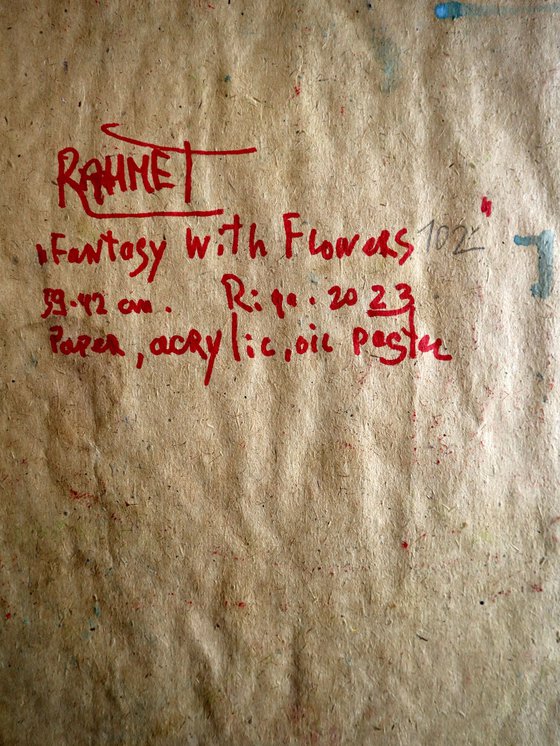 RAHMET
"Fantasy with Flowers"
59·42 cm. Riga. 2023
Paper, acrylic, oil pastel